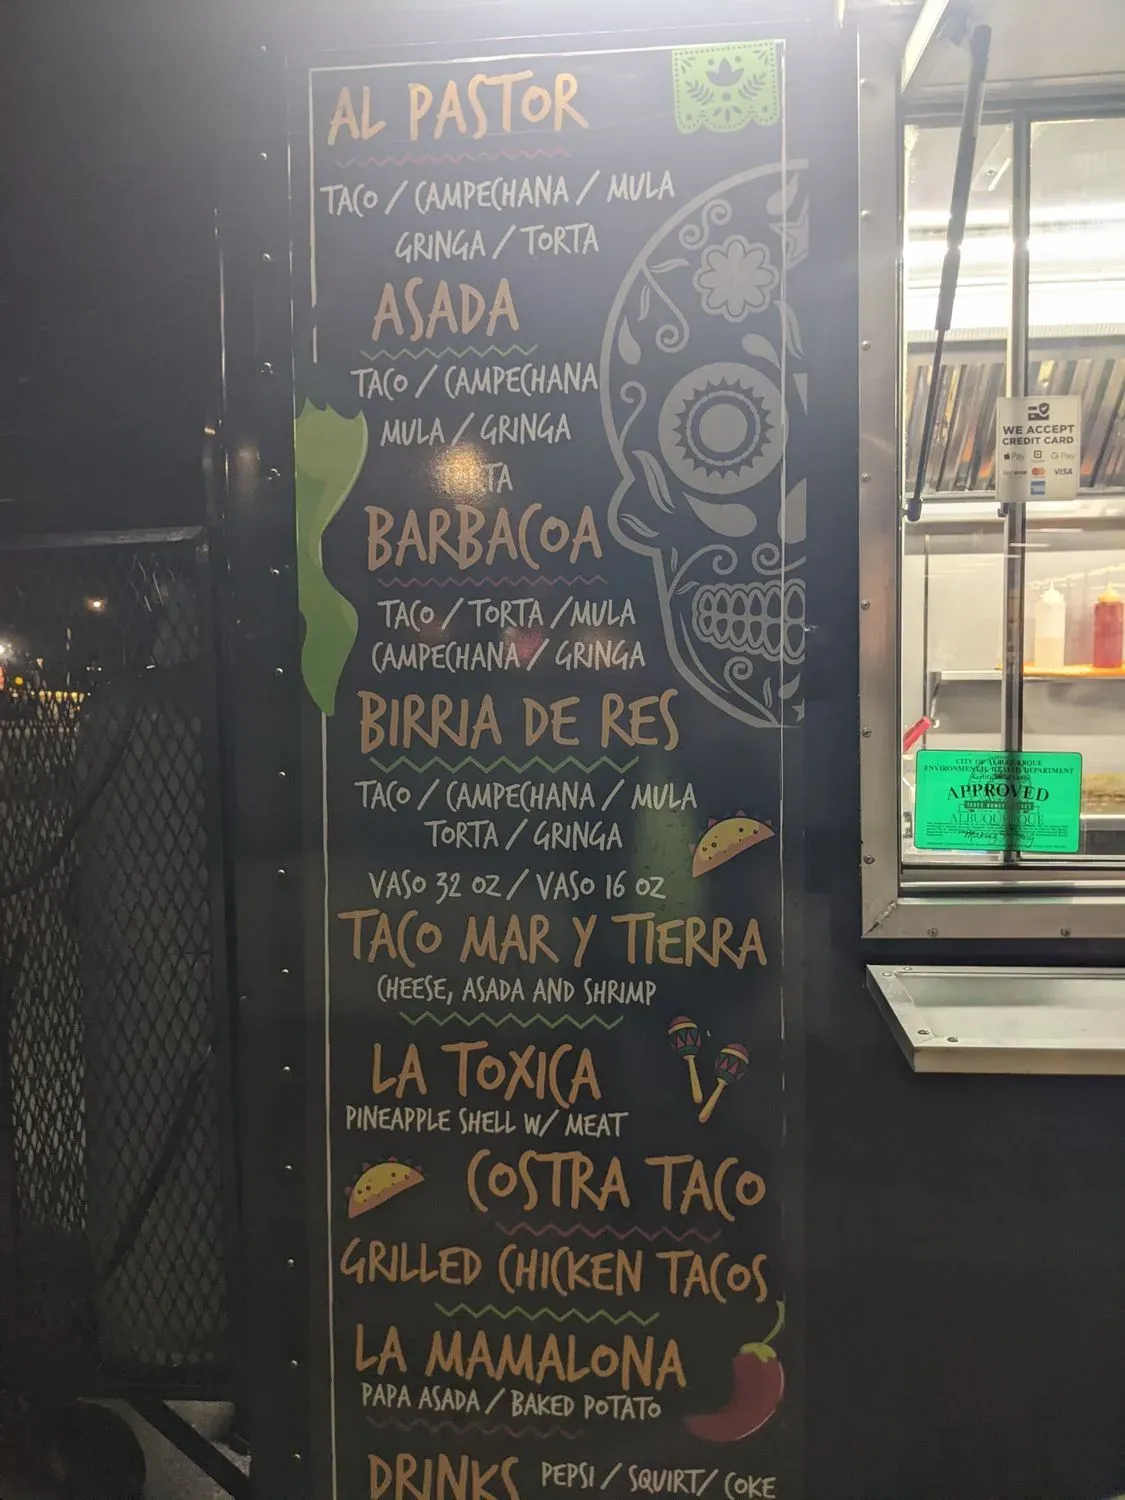 AL PASTOR
TACO / CAMPECHANA / MULA
GRINGA / TORTA
ASADA
TACO / CAMPECHANA
MULA / GRINGA
BARBACOA
TACO / TORTA / MULA
CAMPECHANA / GRINGA
BIRRIA DE RES
TACO / CAMPECHANA / MULA
TORTA / GRINGA
VASO 32 OZ / VASO 16 OZ
TACO MAR Y TIERRA
CHEESE, ASADA AND SHRIMP
LA TOXICA
PINEAPPLE SHELL W/ MEAT
COSTRA TACO
GRILLED CHICKEN TACOS
LA MAMALONA
PAPA ASADA / BAKED POTATO
DRINKS PEPSI / SQUIRT / COKE
WE ACCEPT
CREDIT CARD
Pay G Pay
DISCOVER VISA
CITY OF ALBUQUERQUE
ENVIRONMENTAL HEALTH DEPARTMENT
APPROVED
ALBUQUERQUE